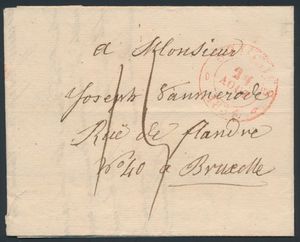 a Monsieur
Joseph Vanmierode
Ruë de flandre
N° 40 à Bruxelle